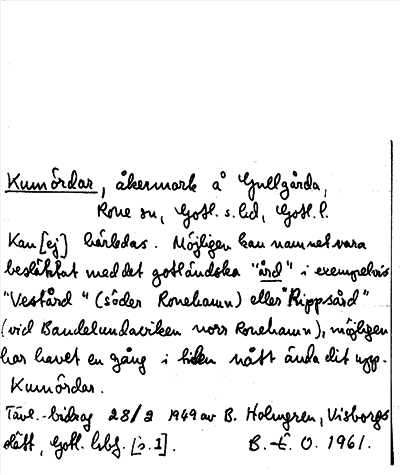 Kumördar, åkermark å Gullgårda,
Rone sn, Gotl. s. hd, Gotl. l.
Kan [ej] härledas. Möjligen kan namnet vara
besläktat med det gotländska "ård" i exempelvis
"Vestård" (söder Ronehamn) eller "Rippsård"
(vid Bandelundaviken norr Ronehamn), möjligen
har havet en gång i tiden nått ända dit upp.
Kumördar.
Tävl.-bidrag 28/2 1949 av B. Holmgren, Visborgs
slätt, Gotl. lvbf. [s. 1]. B.-E. O. 1961.